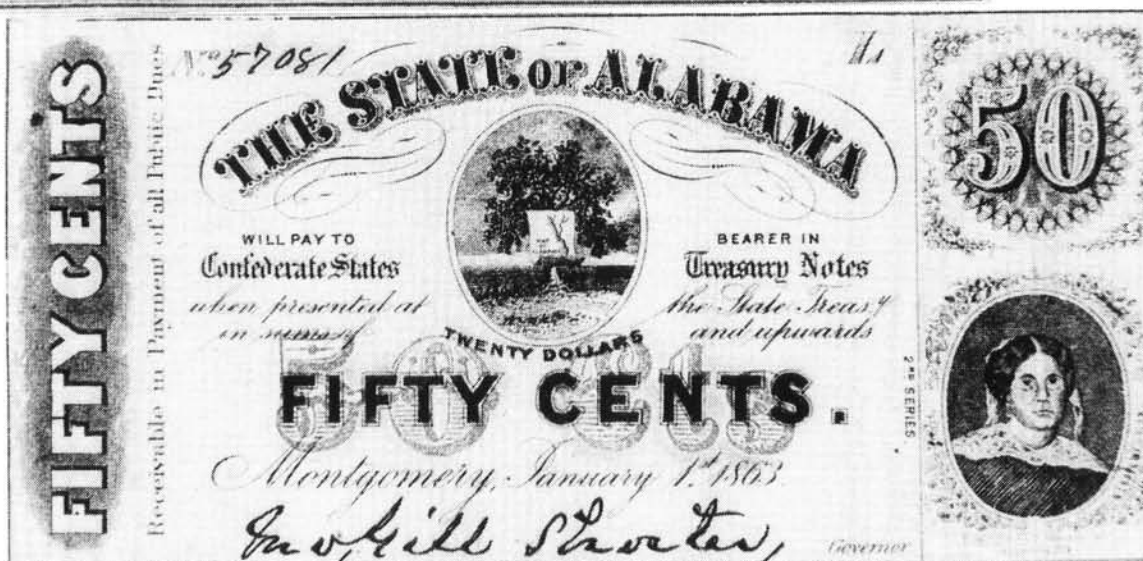 FIFTY CENTS
Receivable in Payment of all Public Dues
No. 57081
THE STATE OF ALABAMA
WILL PAY TO BEARER IN
Confederate States Treasury Notes
when presented at the State Treasy
in sums of and upwards
TWENTY DOLLARS
50 Cts
FIFTY CENTS.
Montgomery, January 1st 1863.
Jno, Gill Shorter,
Governor
50
2ND SERIES.